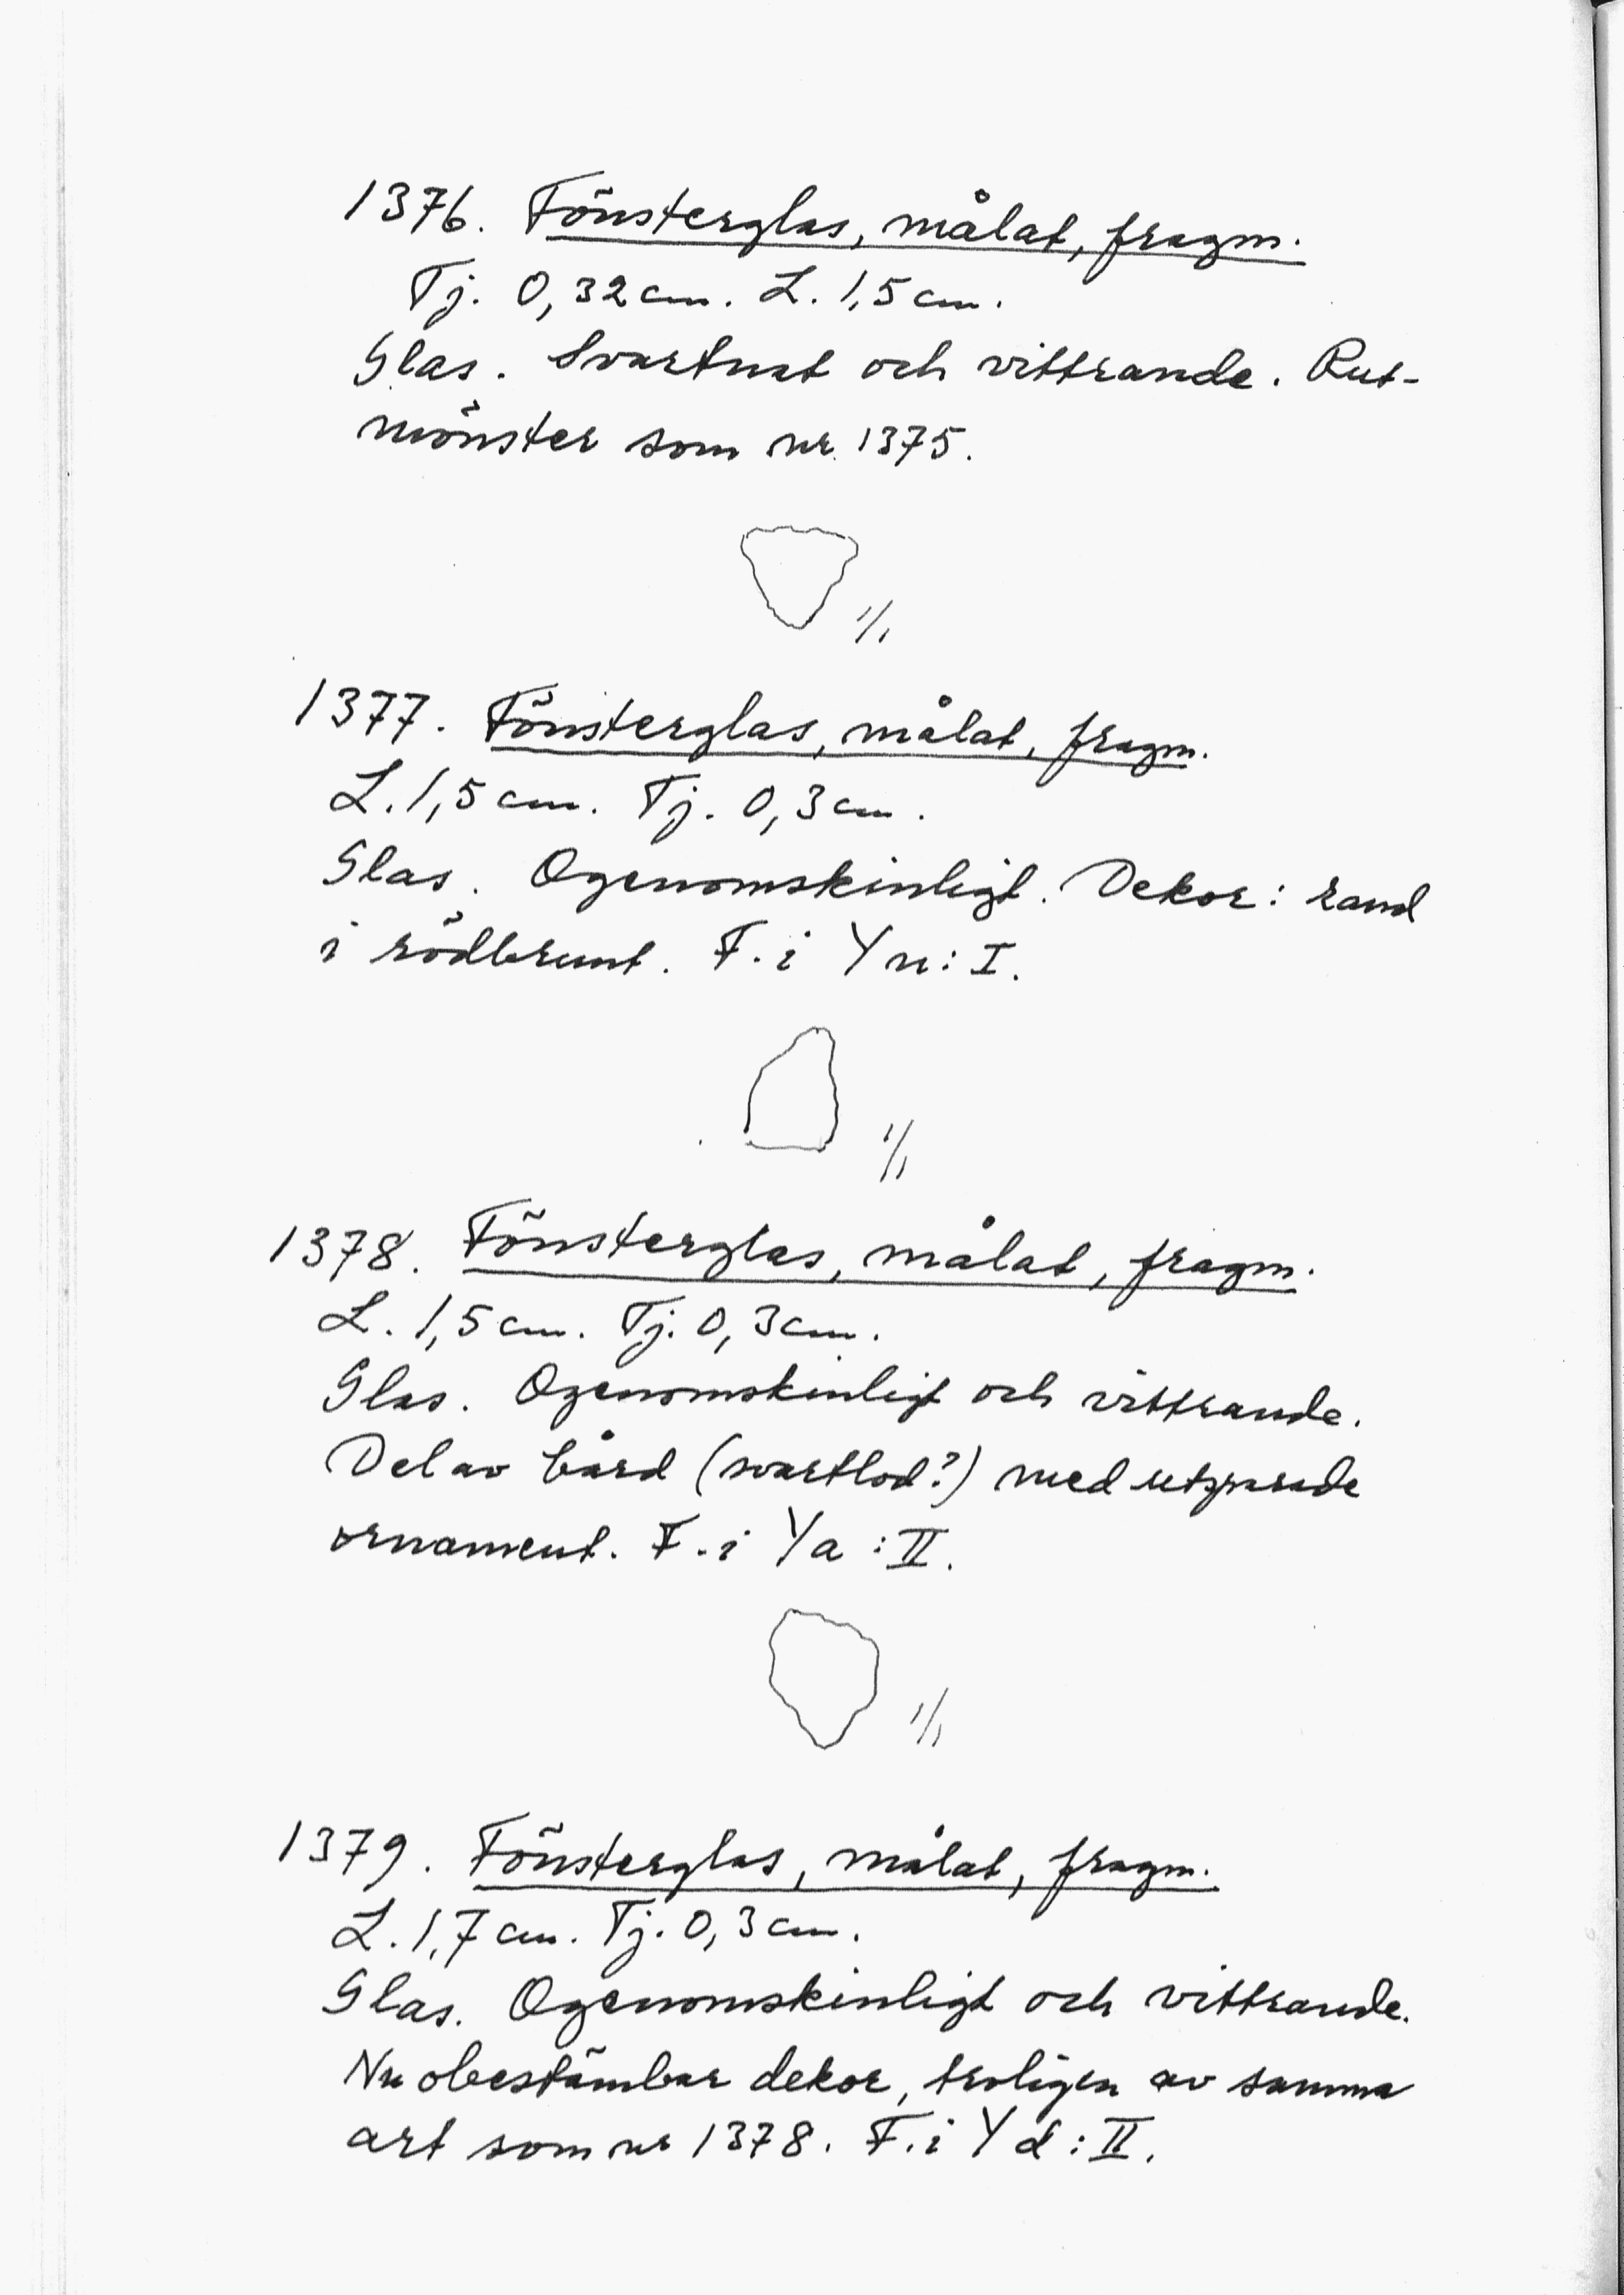 1376. Fönsterglas, målat, fragm.
Tj. 0,32 cm. L. 1,5 cm.
Glas. Svartnat och vittrande. Rut-
mönster som nr 1375.
1/1
1377. Fönsterglas, målat, fragm.
L. 1,5 cm. Tj. 0,3 cm.
Glas. Ogenomskinligt. Dekor: rand
i rödbrunt. F. i Yn: I.
1/1
1378. Fönsterglas, målat, fragm.
L. 1,5 cm. Tj. 0,3 cm.
Glas. Ogenomskinligt och vittrande.
Del av bård (svartlod?) med utsparade
ornament. F. i Ya: II.
1/1
1379. Fönsterglas, målat, fragm.
L. 1,7 cm. Tj. 0,3 cm.
Glas. Ogenomskinligt och vittrande.
Nu obestämbar dekor, troligen av samma
art som nr 1378. F. i Yd: II.